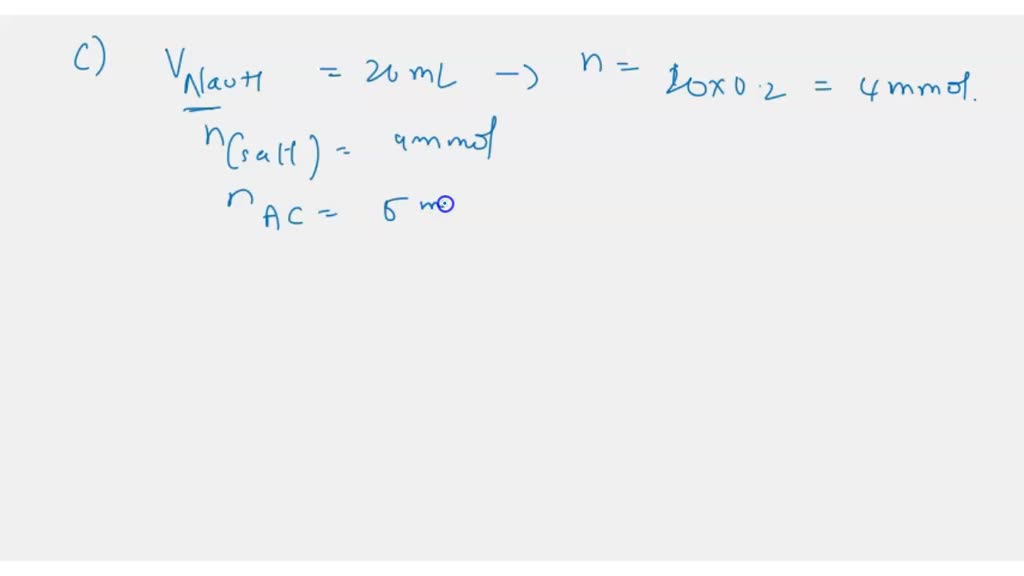 C) VNaOH = 20 mL → n = 20 x 0.2 = 4 mmol.
n(salt) = 4mmol
nAC = 6 m